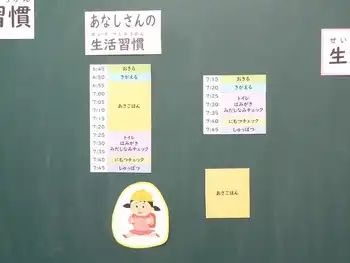 習慣
あなしさんの
せいかつしゅうかん
生活習慣
せい
生
6:45 おきる
6:50 きがえる
6:55
7:00
7:05
7:10 あさごはん
7:15
7:20
7:25 トイレ
7:30 はみがき
7:35 みだしなみチェック
7:40 にもつチェック
7:45 しゅっぱつ
7:10 おきる
7:20 きがえる
7:25 トイレ
7:30 はみがき
7:35 みだしなみチェック
7:40 にもつチェック
7:45 しゅっぱつ
あさごはん